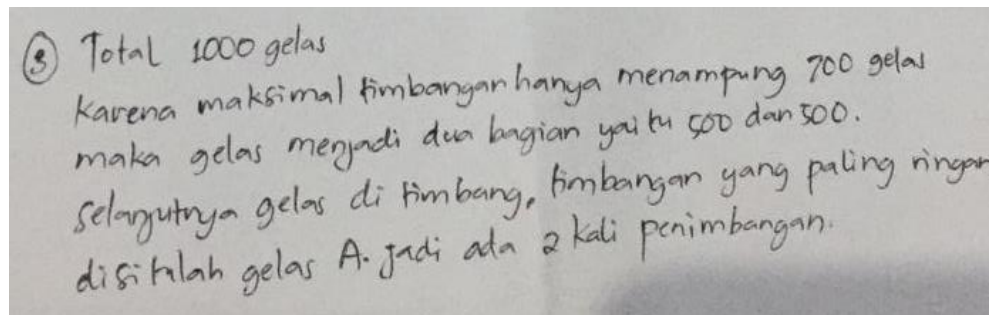 ③ Total 1000 gelas
Karena maksimal timbangan hanya menampung 700 gelas
maka gelas menjadi dua bagian yaitu 500 dan 500.
Selanjutnya gelas di timbang, timbangan yang paling ringan
disitulah gelas A. Jadi ada 2 kali penimbangan.